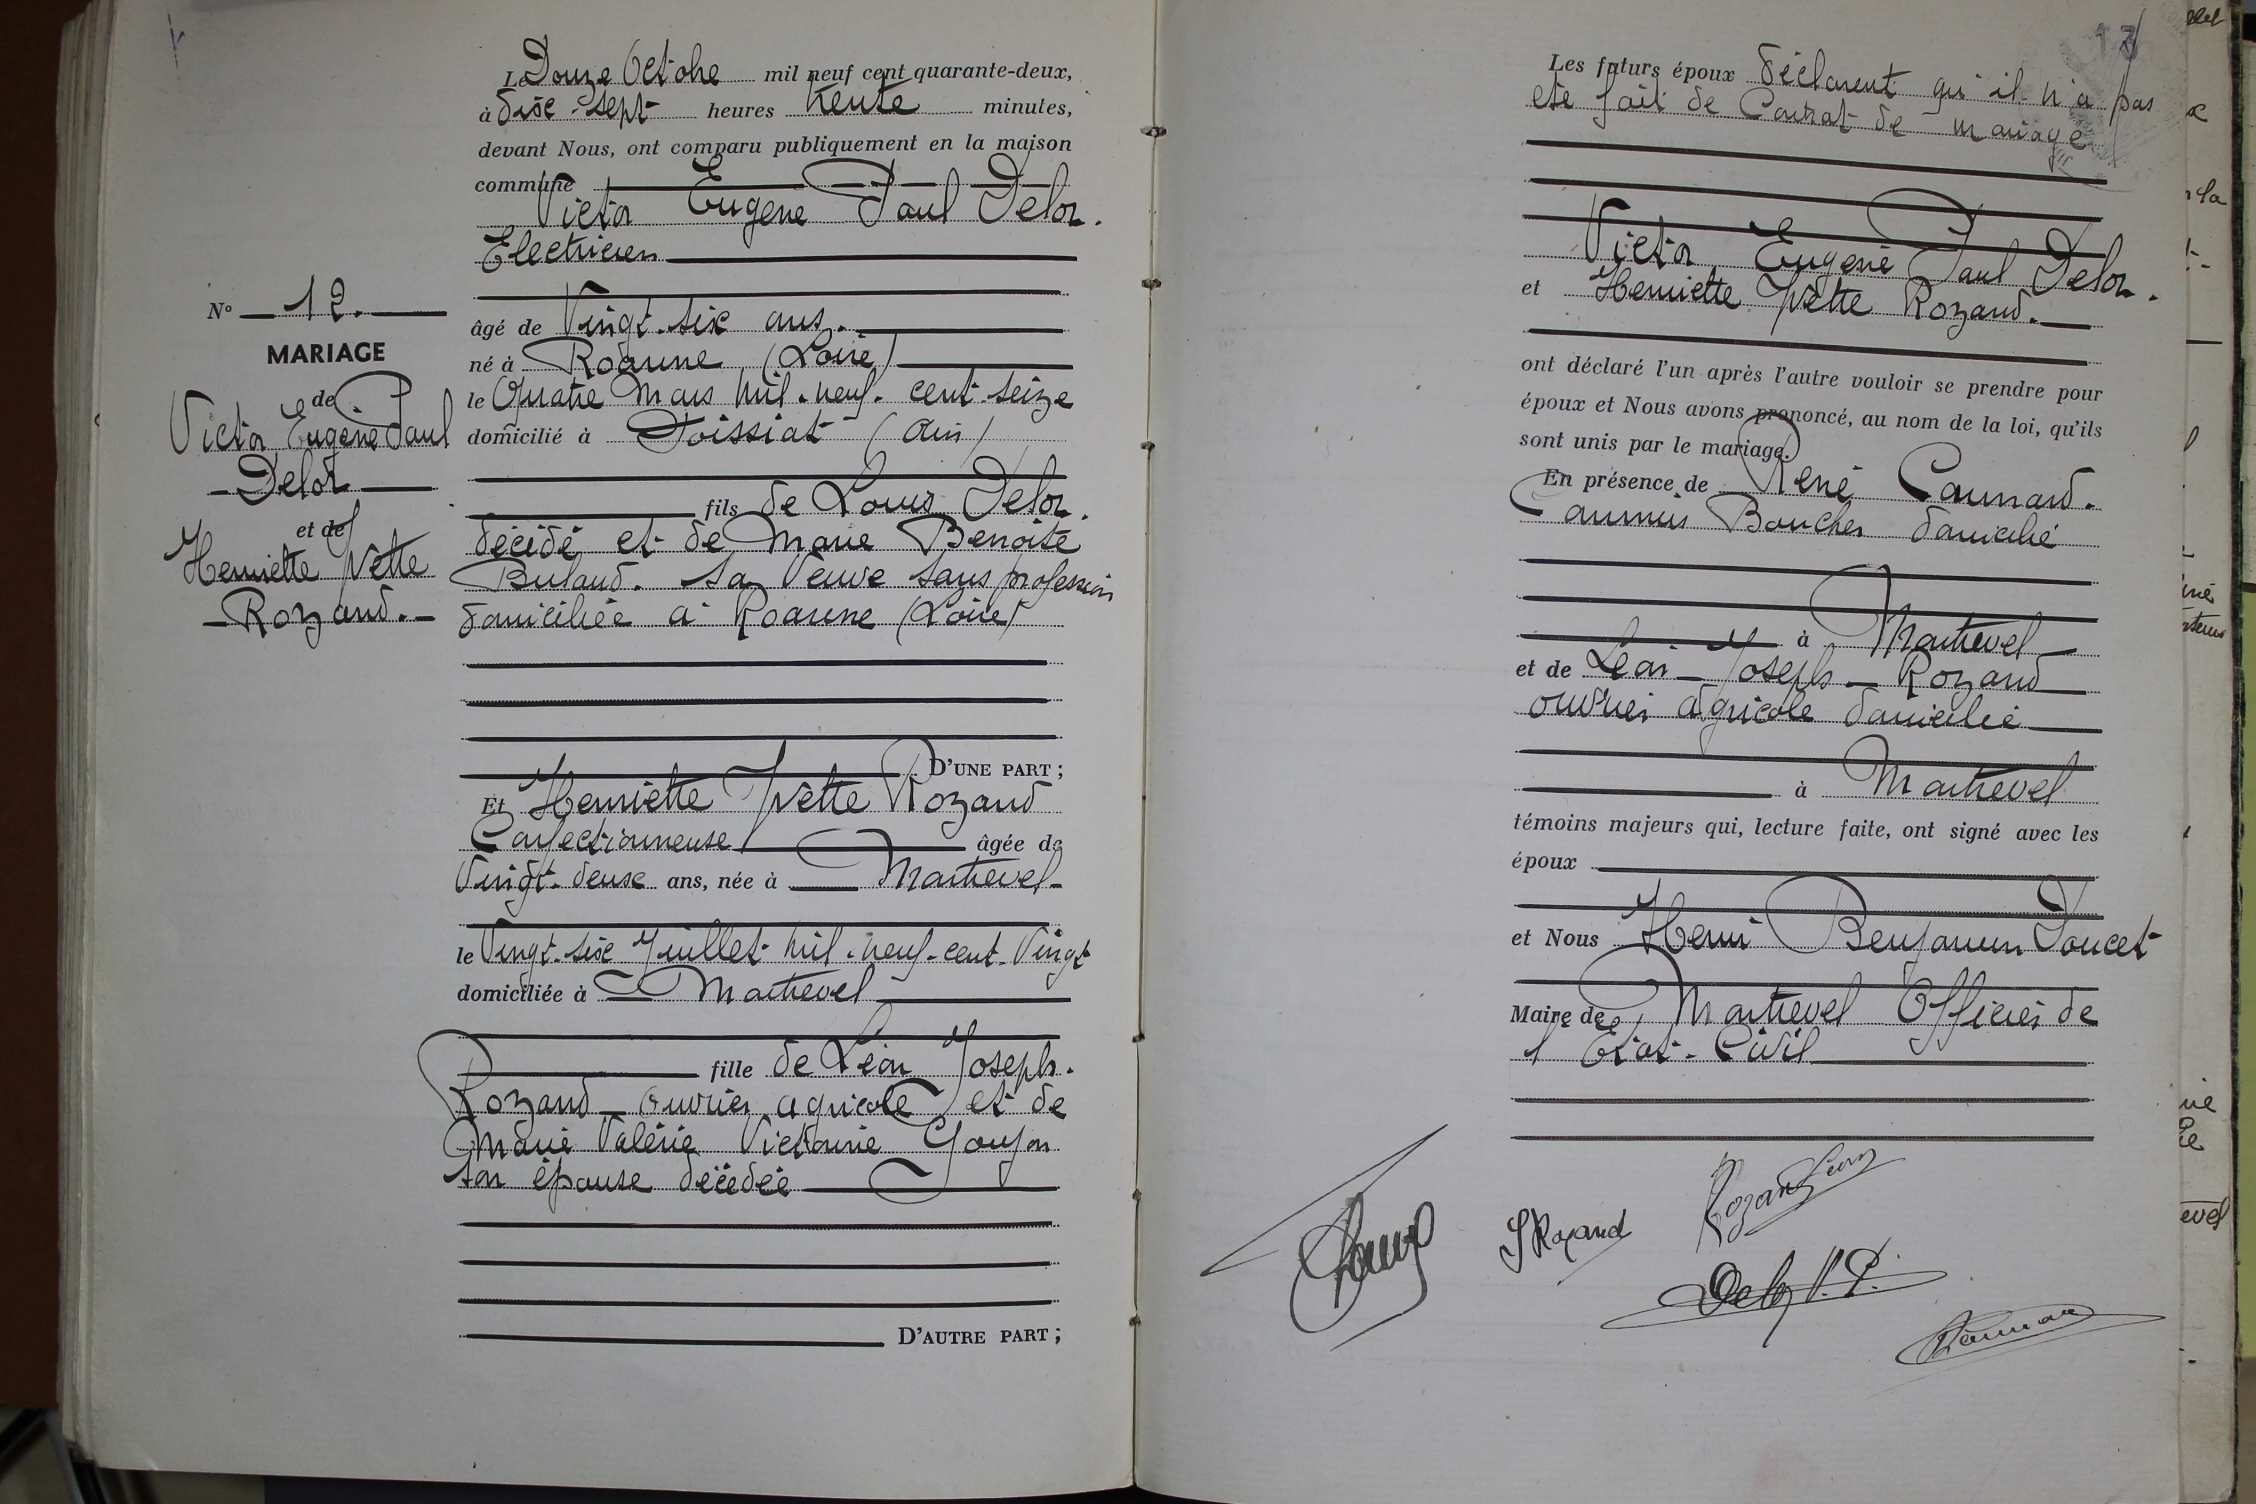 Le Douze Octobre mil neuf cent quarante-deux,
à dix-sept heures trente minutes,
devant Nous, ont comparu publiquement en la maison
commune
Victor Eugène Paul Delor.
Electricien
Nº 12.
MARIAGE
de
Victor Eugène Paul
Delor
et de
Henriette Yvette
Rozand.
âgé de Vingt-six ans.
né à Roanne (Loire)
le Quatre Mars mil-neuf-cent-seize
domicilié à Foissiat (Ain)
fils de Louis Delor.
décédé et de Marie Benoite
sa Veuve sans profession
domiciliée à Roanne (Loire)
D'UNE PART ;
Et Henriette Yvette Rozand
Confectionneuse âgée de
Vingt-deux ans, née à Montrevel
le Vingt-six Juillet mil-neuf-cent-Vingt
domiciliée à Montrevel
fille de Léon Joseph.
Rozand ouvrier agricole et de
Marie Valérie Victorine Goujon
son épouse décédée
D'AUTRE PART ;
13
Les futurs époux déclarent qu'il n'a pas
été fait de Contrat de mariage
Victor Eugène Paul Delor.
et Henriette Yvette Rozand.
ont déclaré l'un après l'autre vouloir se prendre pour
époux et Nous avons prononcé, au nom de la loi, qu'ils
sont unis par le mariage.
En présence de René
Boucher domicilié
à Montrevel
et de Léon Joseph Rozand
ouvrier agricole domicilié
à Montrevel
témoins majeurs qui, lecture faite, ont signé avec les
époux
et Nous Henri Benjamin Doucet
Maire de Montrevel Officier de
l'Etat-Civil
Rozand Léon
Y Rozand
Delor V.P.